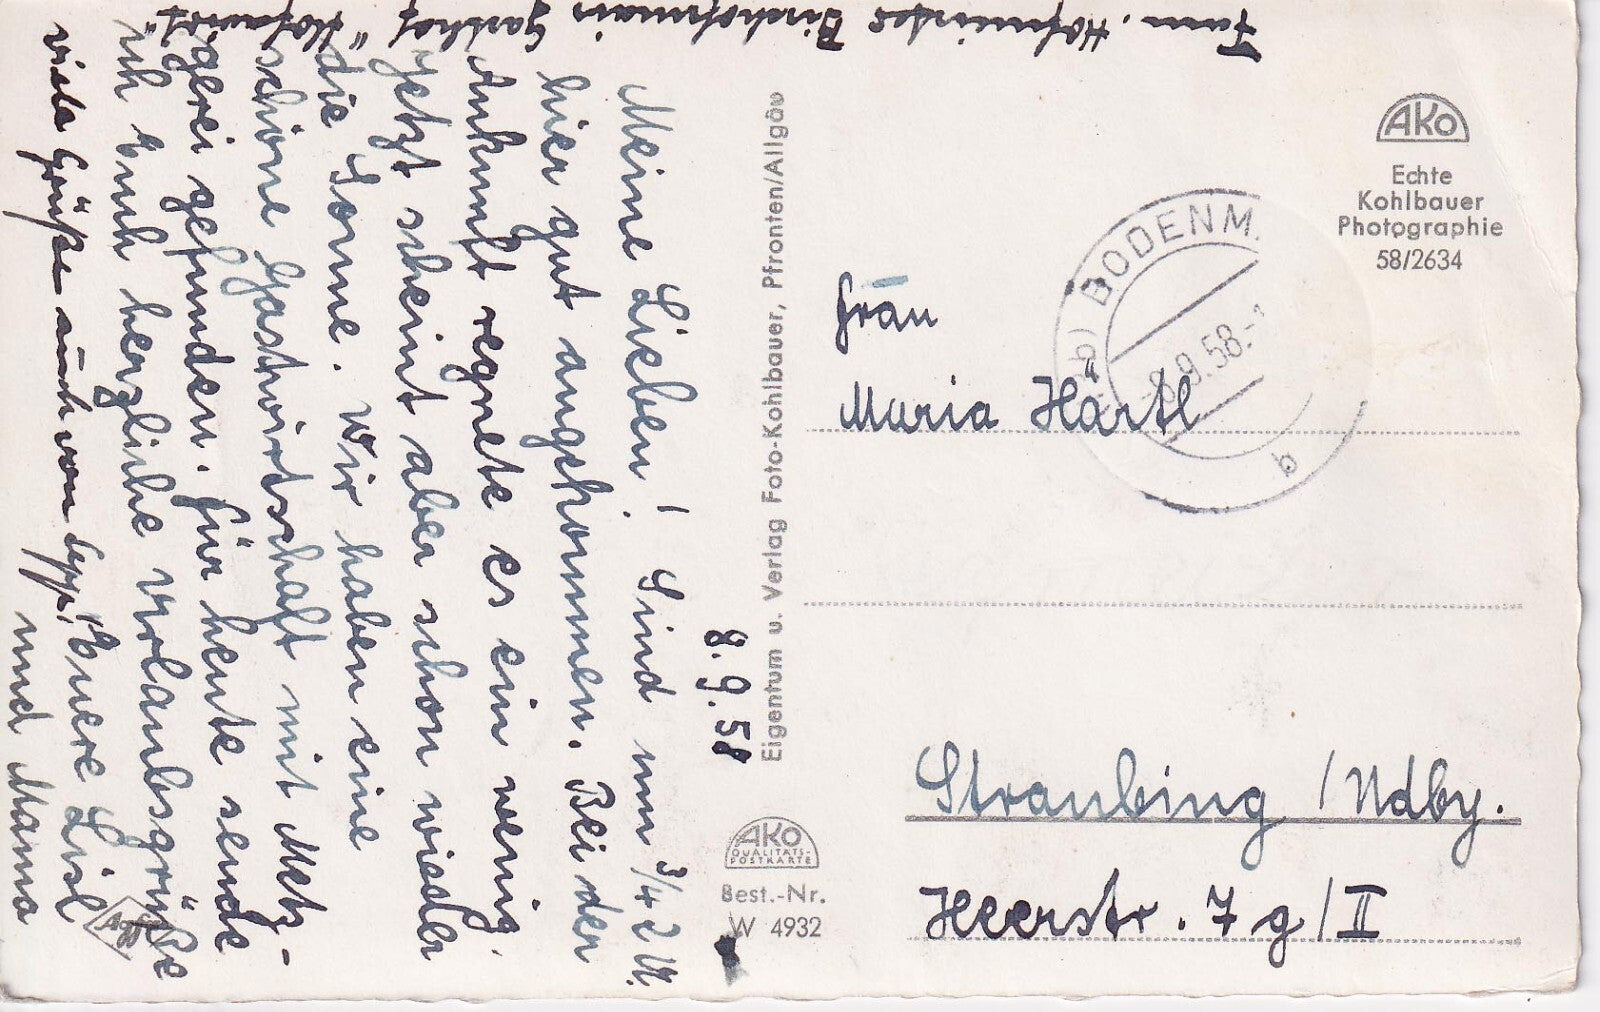 Fam. Hofmeister Bischofsmais Gasthof "Hofwirt"
8.9.58
Meine Lieben! Sind um 3/4 2 U.
hier gut angekommen. Bei der
Ankunft regnete es ein wenig,
jetzt scheint aber schon wieder
die Sonne. Wir haben eine
schöne Gastwirtschaft mit Metz-
gerei gefunden. Für heute sende
ich Euch herzliche Urlaubsgrüße
Euere Liesl
und Mama
viele Grüße auch von Sepp!
Eigentum u. Verlag Foto-Kohlbauer, Pfronten/Allgäu
AKO
QUALITÄTS-
POSTKARTE
Best.-Nr.
W 4932
Agfa
AKO
Echte
Kohlbauer
Photographie
58/2634
BODENM
-8.9.58.-1
b
Frau
Maria Härtl
Straubing /Ndby.
Heerstr. 7 g/II